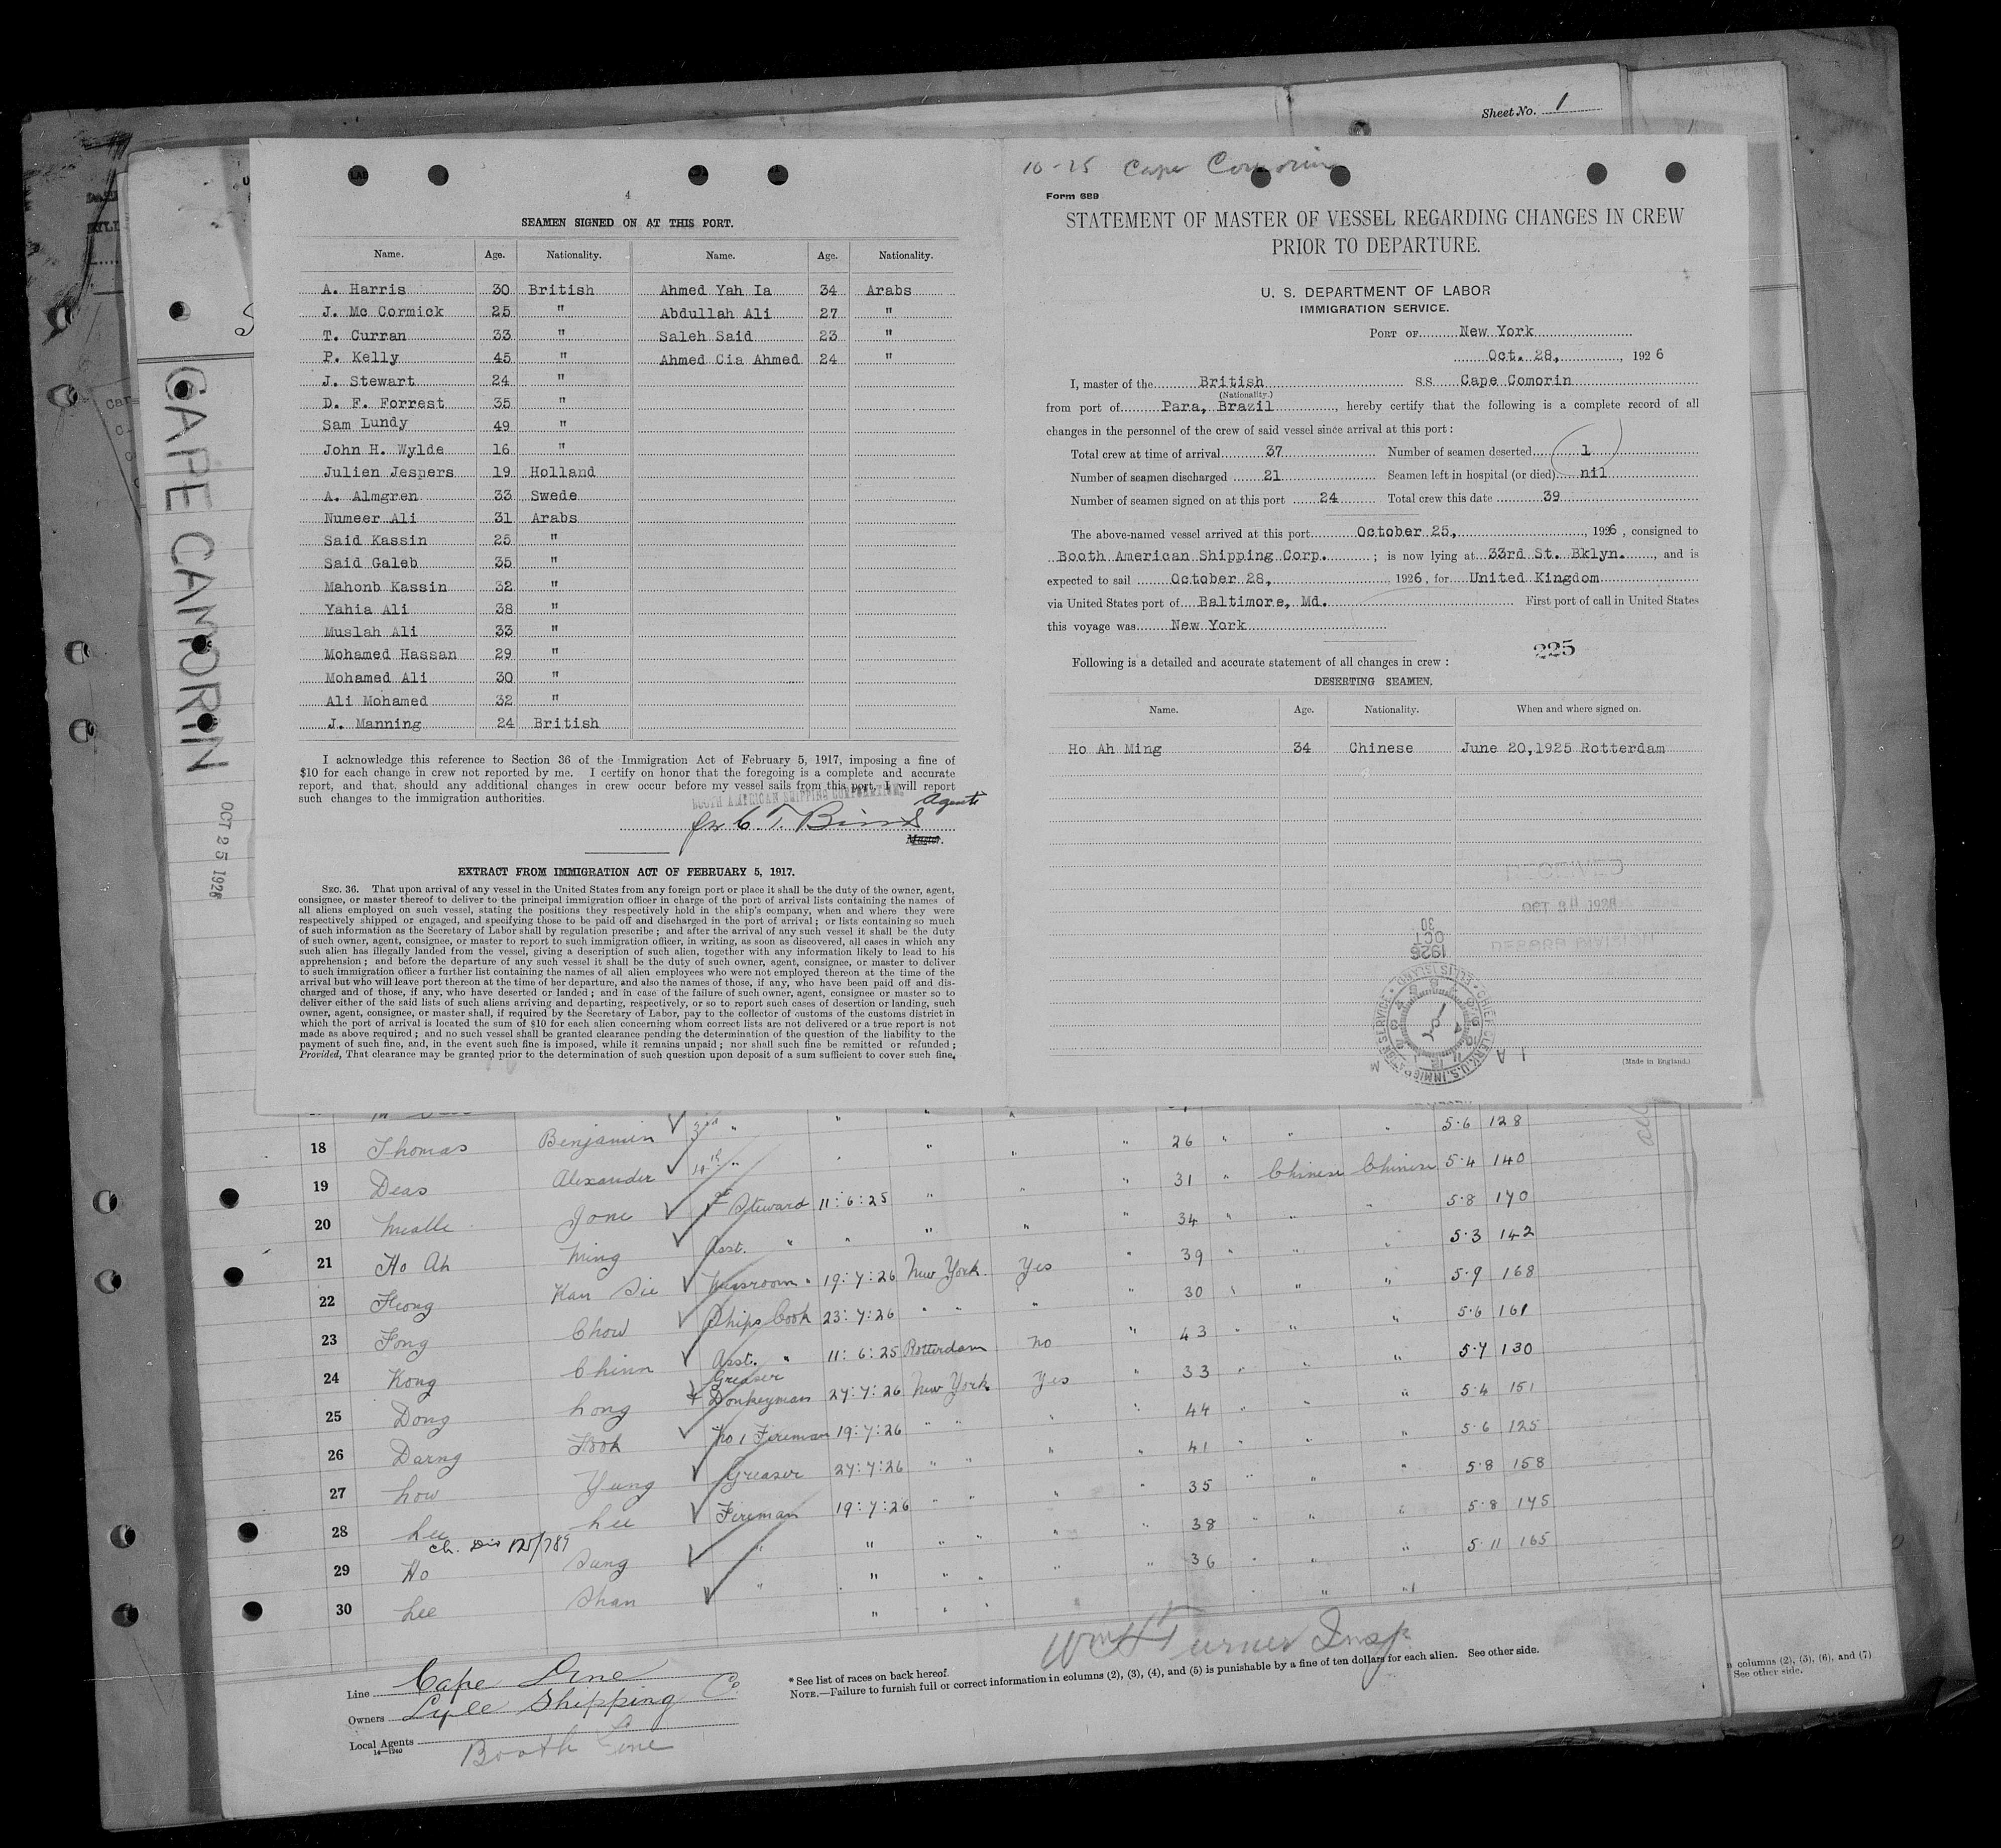 Sheet No. 1
4
SEAMEN SIGNED ON AT THIS PORT.
Name. Age. Nationality. Name. Age. Nationality.
A. Harris 30 British Ahmed Yah Ia 34 Arabs
J. Mc Cormick 25 " Abdullah Ali 27 "
T. Curran 33 " Saleh Said 23 "
P. Kelly 45 " Ahmed Cia Ahmed 24 "
J. Stewart 24 "
D. F. Forrest 35 "
Sam Lundy 49 "
John H. Wylde 16 "
Julien Jespers 19 Holland
A. Almgren 33 Swede
Numeer Ali 31 Arabs
Said Kassin 25 "
Said Galeb 35 "
Mahonb Kassin 32 "
Yahia Ali 38 "
Muslah Ali 33 "
Mohamed Hassan 29 "
Mohamed Ali 30 "
Ali Mohamed 32 "
J. Manning 24 British
I acknowledge this reference to Section 36 of the Immigration Act of February 5, 1917, imposing a fine of
$10 for each change in crew not reported by me. I certify on honor that the foregoing is a complete and accurate
report, and that, should any additional changes in crew occur before my vessel sails from this port, I will report
such changes to the immigration authorities.
BOOTH AMERICAN SHIPPING CORPORATION,
Agents
for C. T. Binns
Master.
EXTRACT FROM IMMIGRATION ACT OF FEBRUARY 5, 1917.
SEC. 36. That upon arrival of any vessel in the United States from any foreign port or place it shall be the duty of the owner, agent,
consignee, or master thereof to deliver to the principal immigration officer in charge of the port of arrival lists containing the names of
all aliens employed on such vessel, stating the positions they respectively hold in the ship's company, when and where they were
respectively shipped or engaged, and specifying those to be paid off and discharged in the port of arrival; or lists containing so much
of such information as the Secretary of Labor shall by regulation prescribe; and after the arrival of any such vessel it shall be the duty
of such owner, agent, consignee, or master to report to such immigration officer, in writing, as soon as discovered, all cases in which any
such alien has illegally landed from the vessel, giving a description of such alien, together with any information likely to lead to his
apprehension; and before the departure of any such vessel it shall be the duty of such owner, agent, consignee, or master to deliver
to such immigration officer a further list containing the names of all alien employees who were not employed thereon at the time of the
arrival but who will leave port thereon at the time of her departure, and also the names of those, if any, who have been paid off and dis-
charged and of those, if any, who have deserted or landed; and in case of the failure of such owner, agent, consignee or master so to
deliver either of the said lists of such aliens arriving and departing, respectively, or so to report such cases of desertion or landing, such
owner, agent, consignee, or master shall, if required by the Secretary of Labor, pay to the collector of customs of the customs district in
which the port of arrival is located the sum of $10 for each alien concerning whom correct lists are not delivered or a true report is not
made as above required; and no such vessel shall be granted clearance pending the determination of the question of the liability to the
payment of such fine, and, in the event such fine is imposed, while it remains unpaid; nor shall such fine be remitted or refunded;
Provided, That clearance may be granted prior to the determination of such question upon deposit of a sum sufficient to cover such fine.
10-25 Cape Comorin
Form 689
STATEMENT OF MASTER OF VESSEL REGARDING CHANGES IN CREW
PRIOR TO DEPARTURE.
U. S. DEPARTMENT OF LABOR
IMMIGRATION SERVICE.
PORT OF New York
Oct. 28, 1926
I, master of the British S.S. Cape Comorin
(Nationality.)
from port of Para, Brazil, hereby certify that the following is a complete record of all
changes in the personnel of the crew of said vessel since arrival at this port:
Total crew at time of arrival 37 Number of seamen deserted 1
Number of seamen discharged 21 Seamen left in hospital (or died) nil
Number of seamen signed on at this port 24 Total crew this date 39
The above-named vessel arrived at this port October 25, 1926, consigned to
Booth American Shipping Corp. ; is now lying at 33rd St. Bklyn., and is
expected to sail October 28, 1926, for United Kingdom
via United States port of Baltimore, Md. First port of call in United States
this voyage was New York
225
Following is a detailed and accurate statement of all changes in crew:
DESERTING SEAMEN.
Name. Age. Nationality. When and where signed on.
Ho Ah Ming 34 Chinese June 20, 1925 Rotterdam
RECEIVED
DEBARR DIVISION
1926
OCT
30
CHIEF CLERK, U.S. IMMIGRATION SERVICE · ELLIS ISLAND
(Made in England.)
CAPE CAMORIN
OCT 25 1926
5.6 128
18 Thomas Benjamin 3rd " " " " " 26 " " " 5.4 140
19 Deas Alexander 4th " " " " " 31 " Chinese Chinese 5.8 170
20 Jone 1st Steward 11:6:25 " " " 34 " " " 5.3 142
21 Ho Ah Ming Asst. " " " " " 39 " " " 5.9 168
22 Heong Kan Sie Messroom " 19:7:26 New York Yes " 30 " " " 5.6 161
23 Fong Chow Ships Cook 23:7:26 " " " " 43 " " " 5.7 130
24 Kong Chinn Asst. " 11:6:25 Rotterdam no " 33 " " " 5.4 151
25 Dong Long Greaser + Donkeyman 27:7:26 New York Yes " 44 " " " 5.6 125
26 Darng Hook No 1 Fireman 19:7:26 " " " " 41 " " " 5.8 158
27 Low Yung Greaser 27:7:26 " " " " 35 " " " 5.8 175
28 Lee Lee Fireman 19:7:26 " " " " 38 " " " 5.11 165
Ch. Dis 125/789
29 Ho Sung " " " " " " 36 " " "
30 Lee Shan " " " "
Wm H Turner Insp.
Line Cape Line
Owners Lyle Shipping Co.
Local Agents Booth Line
14—1240
* See list of races on back hereof.
NOTE.—Failure to furnish full or correct information in columns (2), (3), (4), and (5) is punishable by a fine of ten dollars for each alien. See other side.
columns (2), (5), (6), and (7)
See other side.